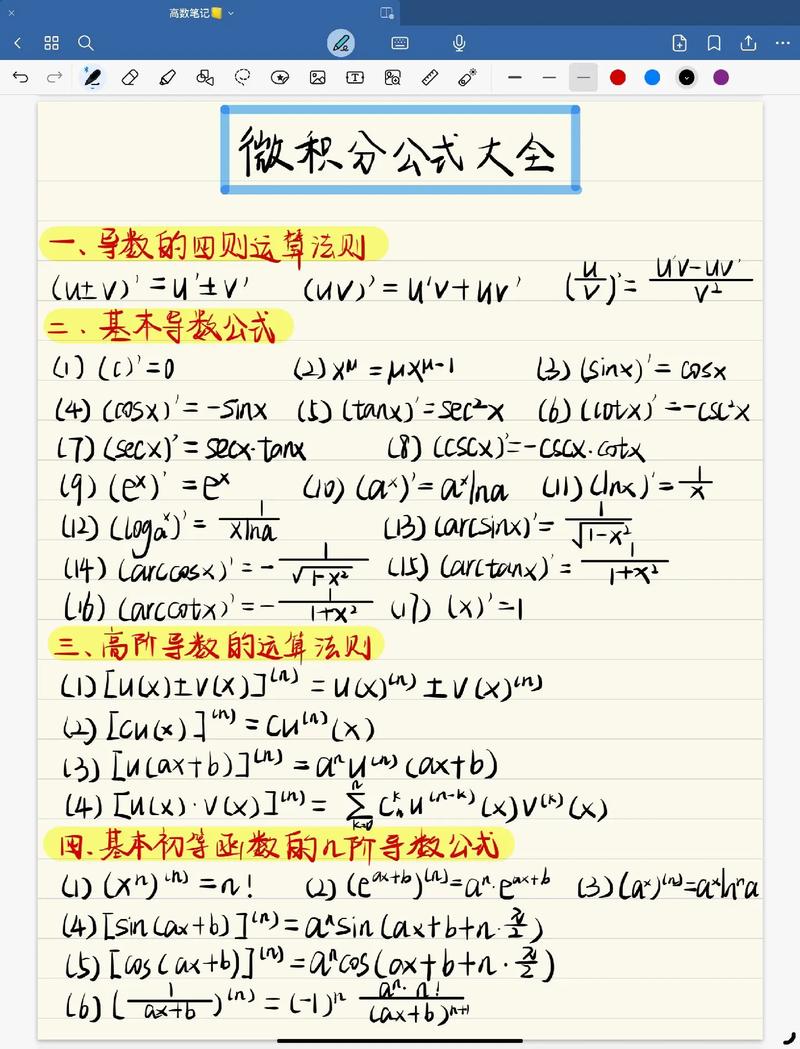 高数笔记
微积分公式大全
一、导数的四则运算法则
(u±v)'=u'±v' (uv)'=u'v+uv' (u/v)'=(u'v-uv')/v²
二、基本导数公式
(1) (c)'=0 (2) x^μ=μx^(μ-1) (3) (sinx)'=cosx
(4) (cosx)'=-sinx (5) (tanx)'=sec²x (6) (cotx)'=-csc²x
(7) (secx)'=secx·tanx (8) (cscx)'=-cscx·cotx
(9) (e^x)'=e^x (10) (a^x)'=a^x lna (11) (lnx)'=1/x
(12) (log_a^x)'=1/(xlna) (13) (arcsinx)'=1/√(1-x²)
(14) (arccosx)'=-1/√(1-x²) (15) (arctanx)'=1/(1+x²)
(16) (arccotx)'=-1/(1+x²) (17) (x)'=1
三、高阶导数的运算法则
(1) [u(x)±v(x)]^(n)=u(x)^(n)±v(x)^(n)
(2) [cu(x)]^(n)=cu^(n)(x)
(3) [u(ax+b)]^(n)=a^n u^(n)(ax+b)
(4) [u(x)·v(x)]^(n)=∑_{k=0}^{n} C_n^k u^(n-k)(x)v^(k)(x)
四、基本初等函数的n阶导数公式
(1) (x^n)^(n)=n! (2) (e^(ax+b))^(n)=a^n·e^(ax+b) (3) (a^x)^(n)=a^x ln^n a
(4) [sin(ax+b)]^(n)=a^n sin(ax+b+n·π/2)
(5) [cos(ax+b)]^(n)=a^n cos(ax+b+n·π/2)
(6) (1/(ax+b))^(n)=(-1)^n (a^n·n!)/(ax+b)^(n+1)